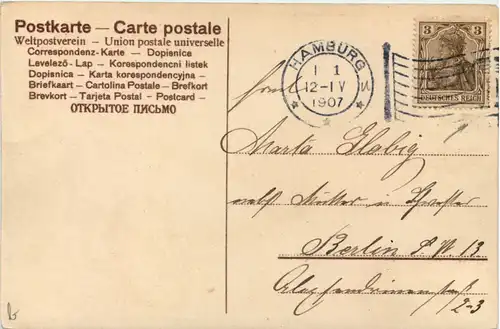 Postkarte — Carte postale
Weltpostverein — Union postale universelle
Correspondenz-Karte — Dopisnica
Levelező-Lap — Korespondencni listek
Dopisnica — Karta korespondencyjna —
Briefkaart — Cartolina Postale — Brefkort
Brevkort — Tarjeta Postal — Postcard —
ОТКРЫТОЕ ПИСЬМО
HAMBURG
1 1
12-1V
1907
3 3
DEUTSCHES REICH
Marta Glabig
nebst Mutter u Schwester
Berlin S.W. 13
Alexandrinenstraße
2-3